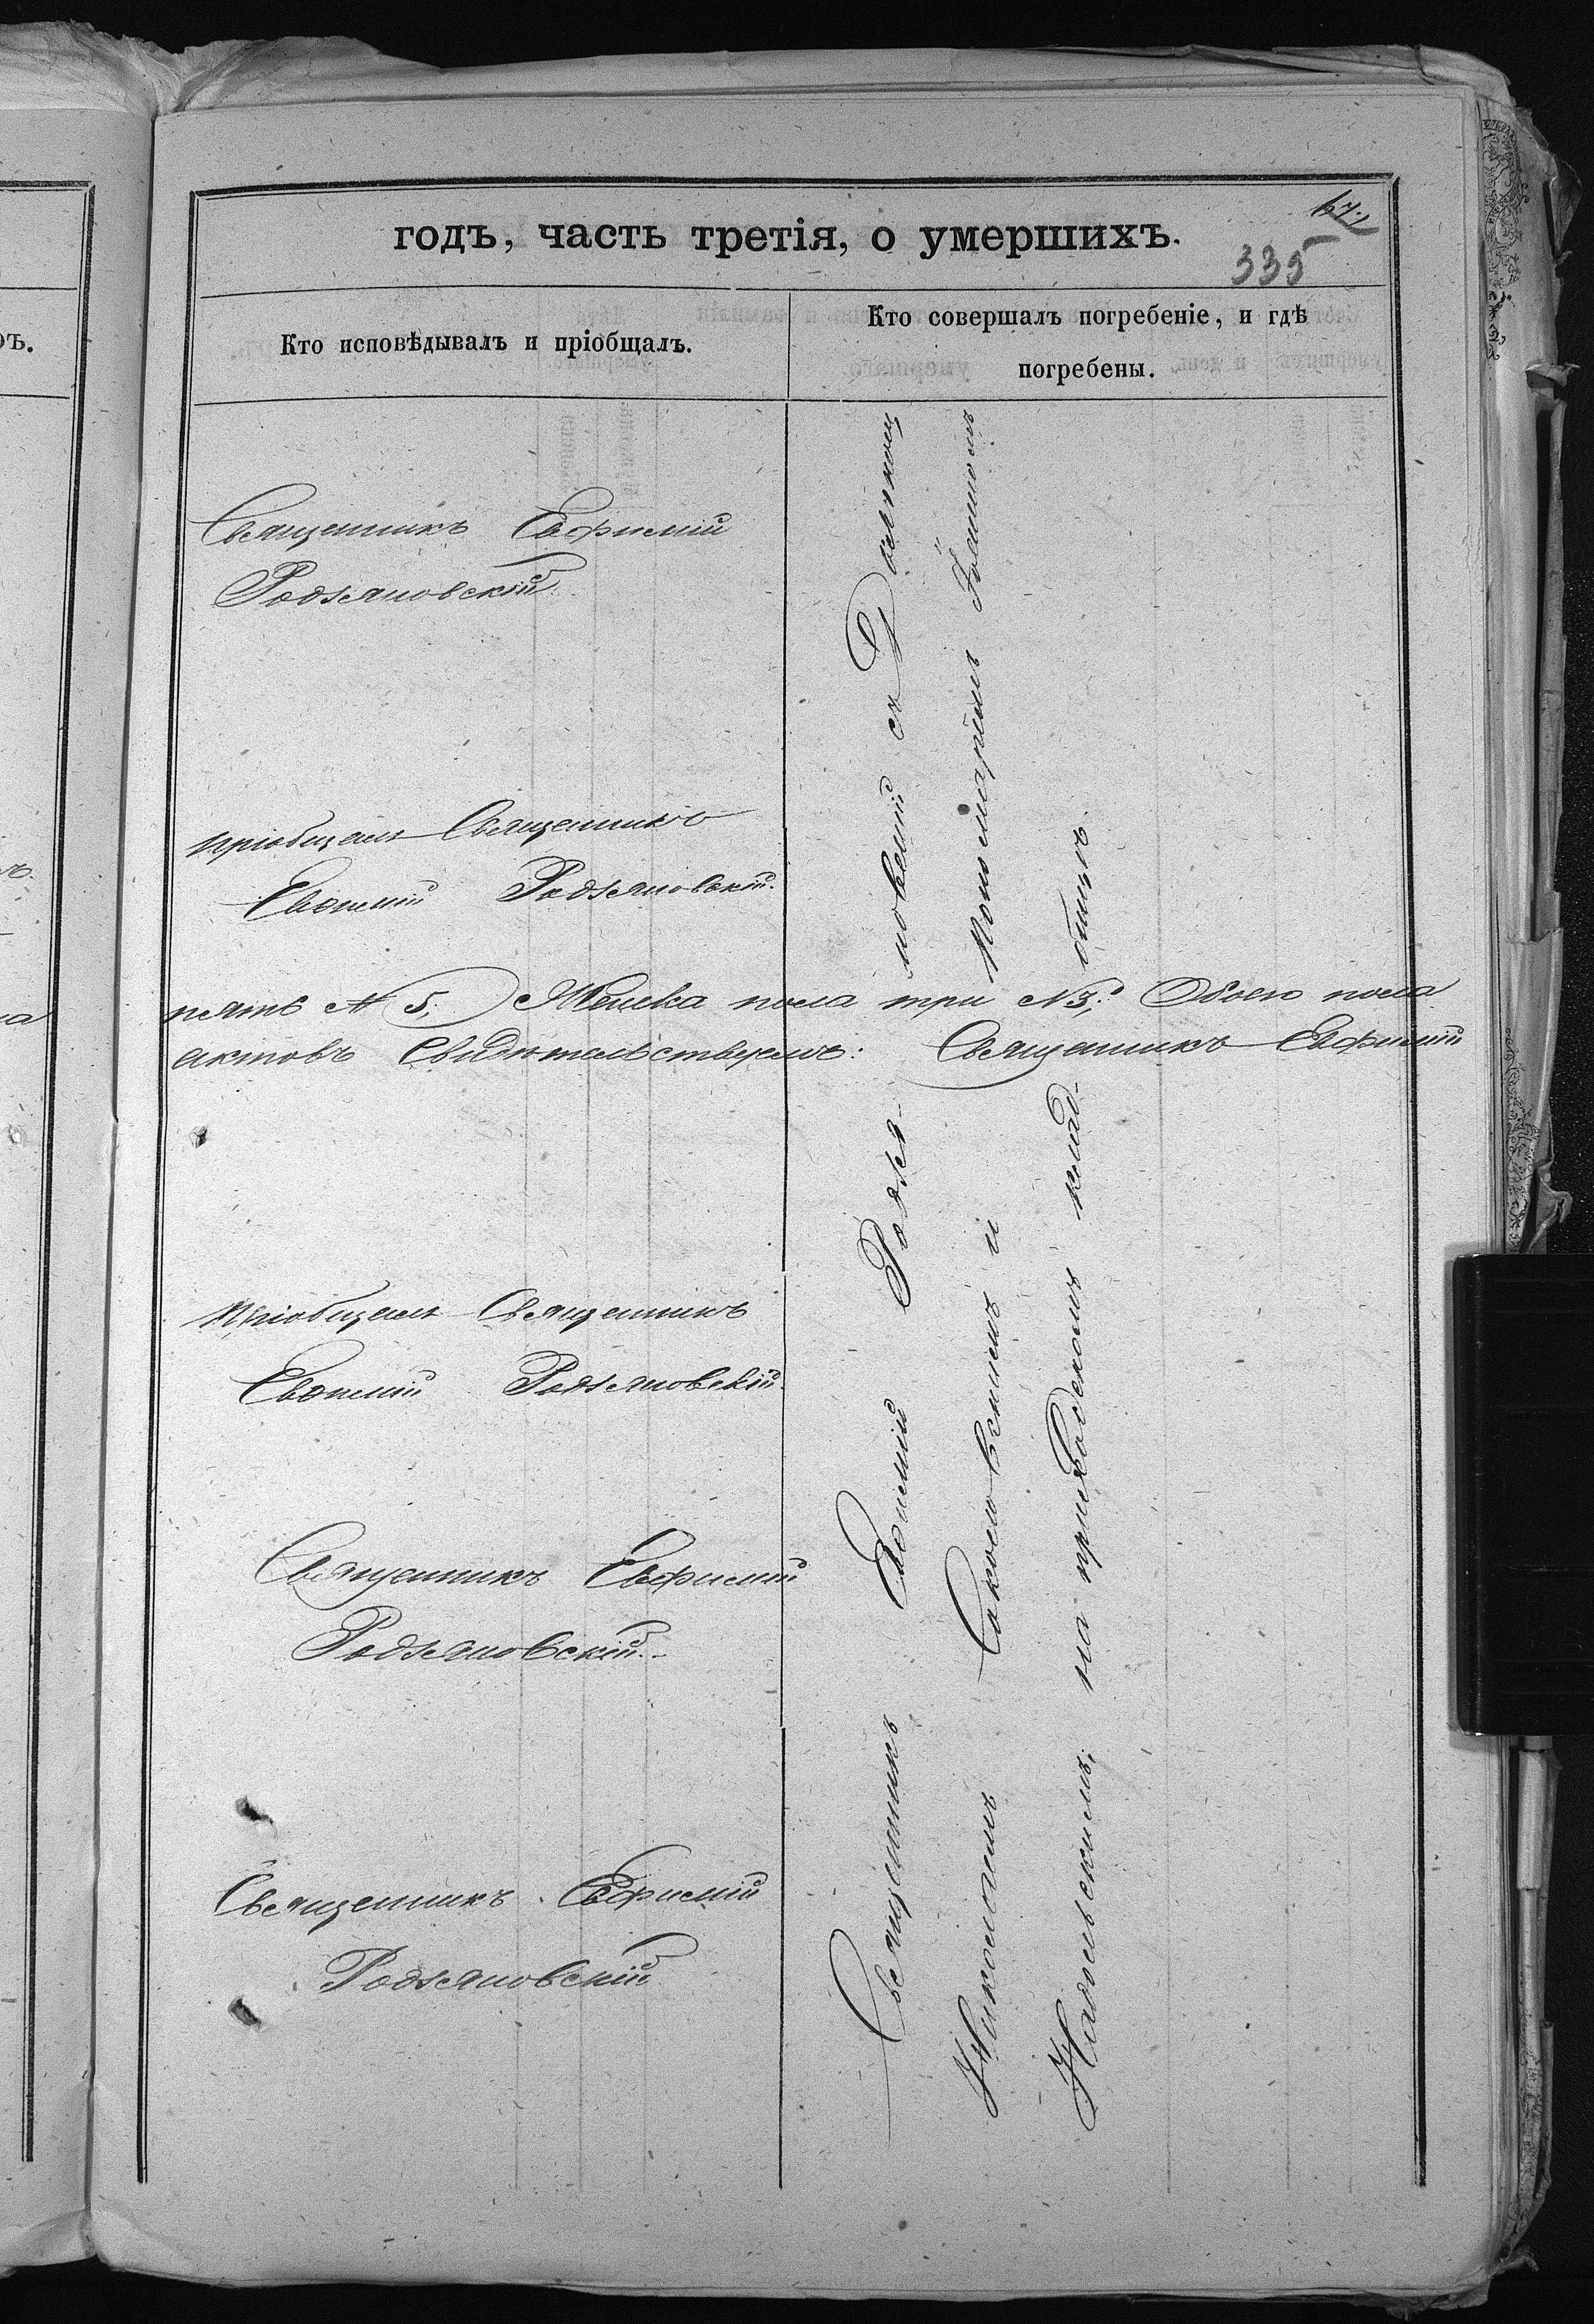 67.
годъ, часть третія, о умершихъ.
335
Кто исповѣдывалъ и пріобщалъ.
Кто совершалъ погребеніе, и гдѣ
погребены.
Священникъ Евфимій
Родзяновскій.
пріобщалъ Священникъ
Евѳимій Родзяновскій.
пять № 5; Женска пола три № 3; Обоего пола
актовъ Свидѣтельствуемъ: Священникъ Евфимій
Пріобщалъ Священникъ
Евѳимій Родзяновскій.
Священникъ Евфимій
Родзяновскій.
Священникъ Евфимій
Родзяновскій
Священникъ Евѳимій Родзя-
новскій съ
Николаемъ Соколовскимъ и Пономаремъ
Надольскимъ; на приходскомъ клад-
бищѣ.